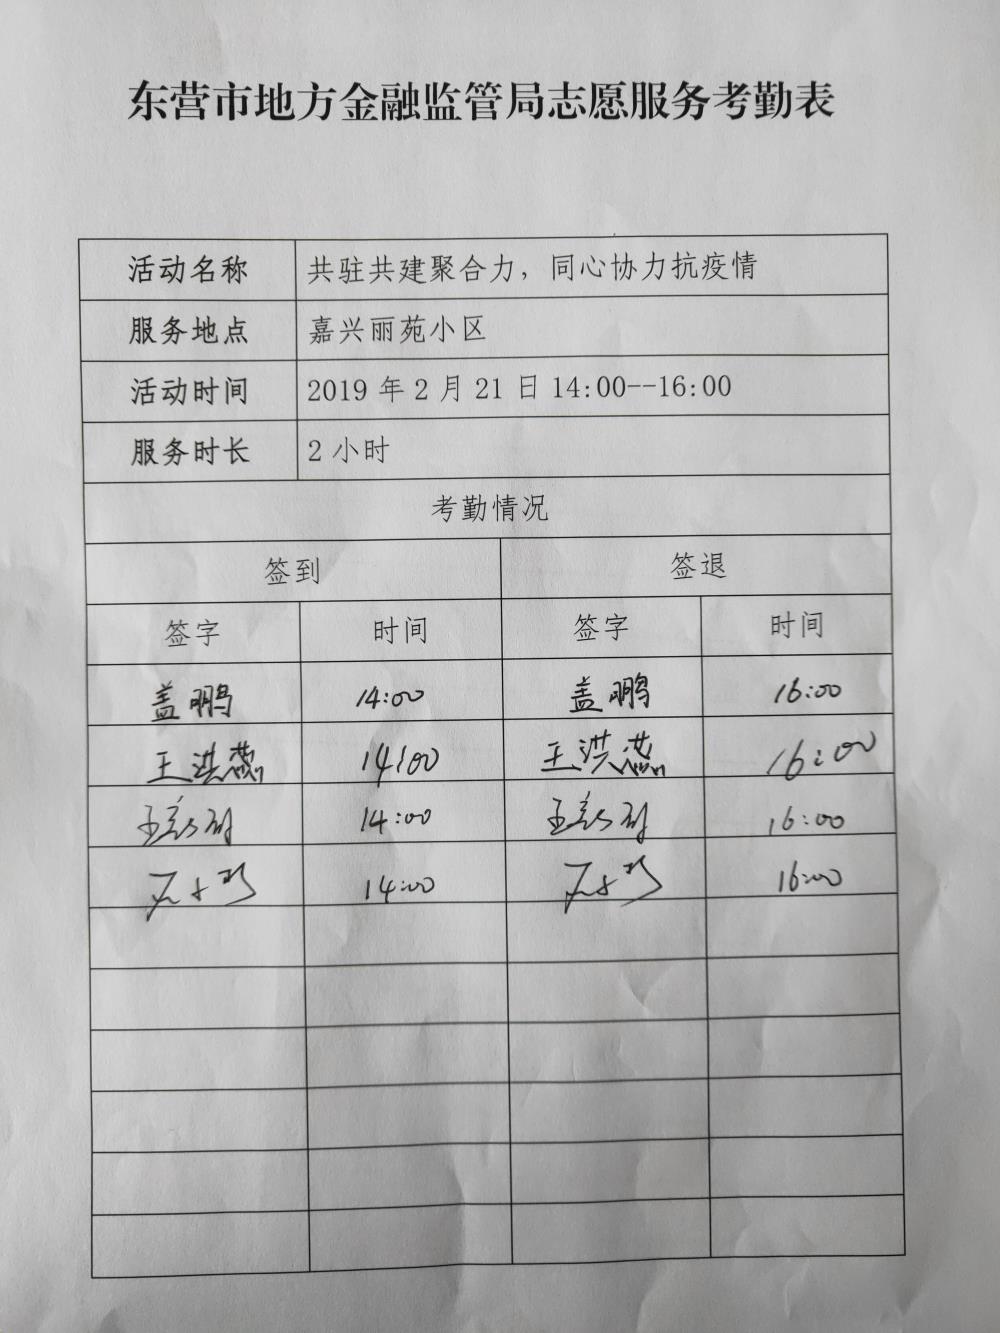 东营市地方金融监管局志愿服务考勤表
活动名称 共驻共建聚合力，同心协力抗疫情
服务地点 嘉兴丽苑小区
活动时间 2019 年 2 月 21 日 14:00--16:00
服务时长 2 小时
考勤情况
签到 签退
签字 时间 签字 时间
盖鹏 14:00 盖鹏 16:00
王洪 14:00 王洪 16:00
王 14:00 王 16:00
14:00 16:00